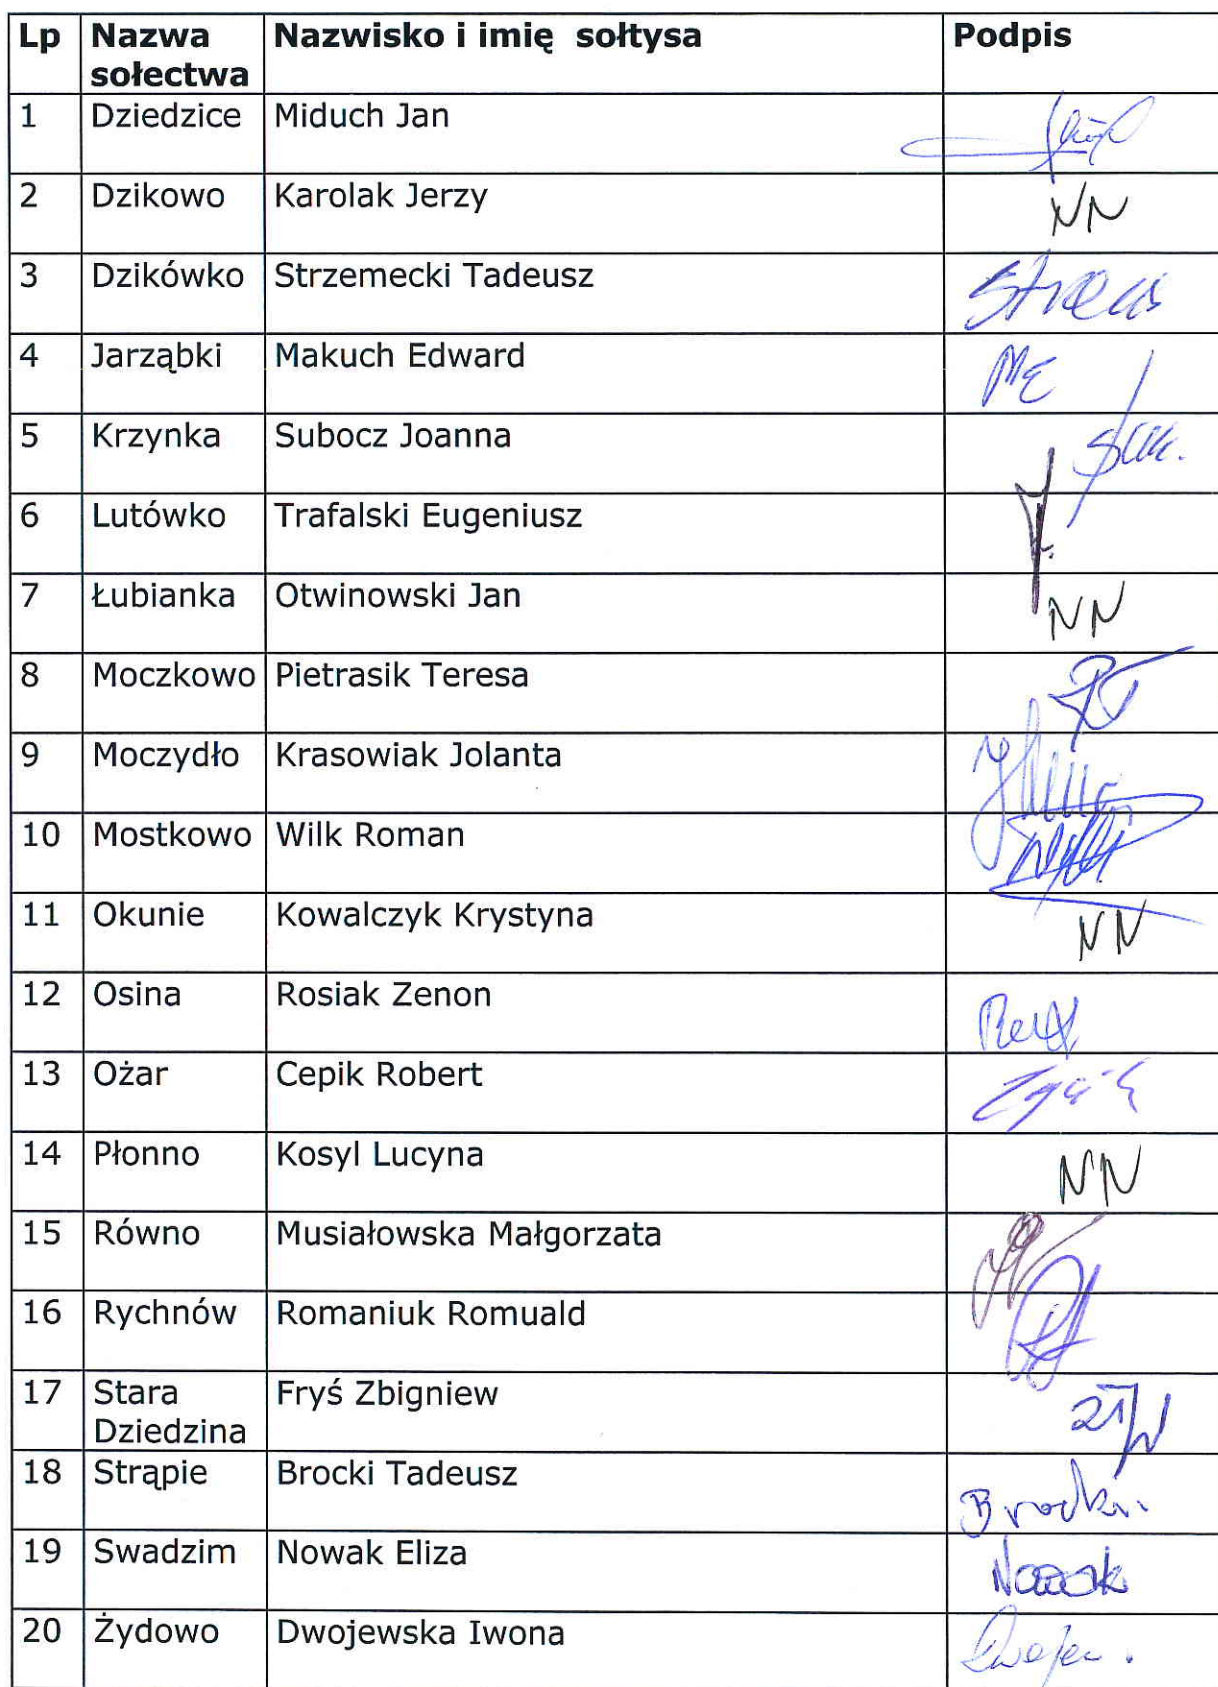 Lp Nazwa sołectwa Nazwisko i imię sołtysa Podpis
1 Dziedzice Miduch Jan
2 Dzikowo Karolak Jerzy NN
3 Dzikówko Strzemecki Tadeusz
4 Jarząbki Makuch Edward ME
5 Krzynka Subocz Joanna
6 Lutówko Trafalski Eugeniusz
7 Łubianka Otwinowski Jan NN
8 Moczkowo Pietrasik Teresa
9 Moczydło Krasowiak Jolanta
10 Mostkowo Wilk Roman
11 Okunie Kowalczyk Krystyna NN
12 Osina Rosiak Zenon
13 Ożar Cepik Robert
14 Płonno Kosyl Lucyna NN
15 Równo Musiałowska Małgorzata
16 Rychnów Romaniuk Romuald
17 Stara Dziedzina Fryś Zbigniew
18 Strąpie Brocki Tadeusz Brocki
19 Swadzim Nowak Eliza Nowak
20 Żydowo Dwojewska Iwona